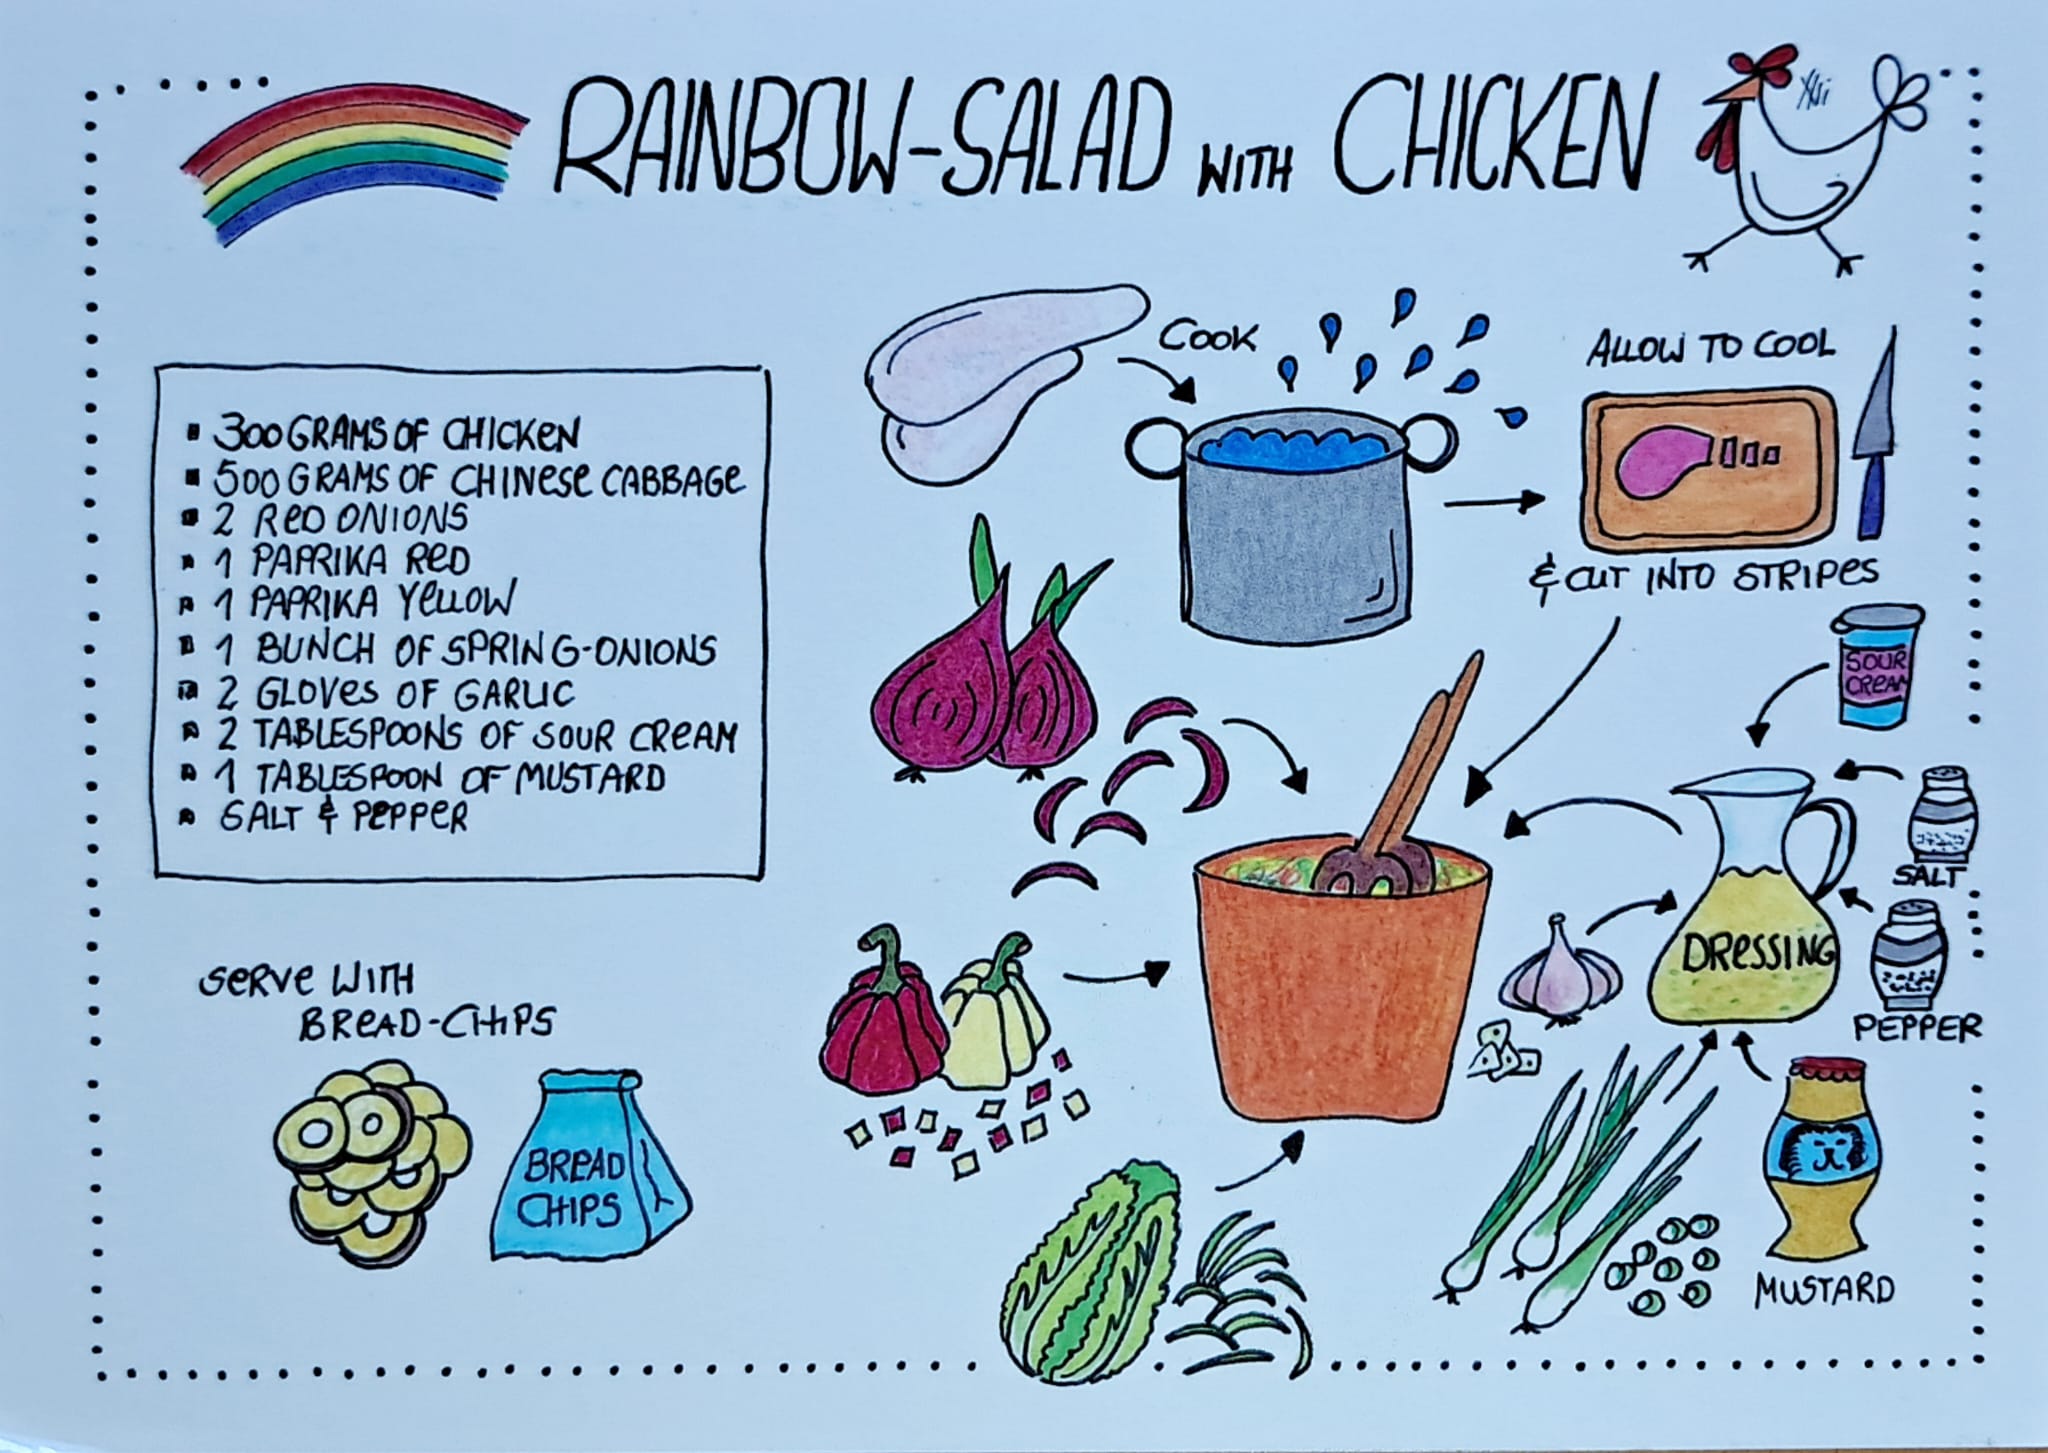 RAINBOW-SALAD WITH CHICKEN
COOK
ALLOW TO COOL
& CUT INTO STRIPES
▪ 300 GRAMS OF CHICKEN
▪ 500 GRAMS OF CHINESE CABBAGE
▪ 2 RED ONIONS
▪ 1 PAPRIKA RED
▪ 1 PAPRIKA YELLOW
▪ 1 BUNCH OF SPRING-ONIONS
▪ 2 GLOVES OF GARLIC
▪ 2 TABLESPOONS OF SOUR CREAM
▪ 1 TABLESPOON OF MUSTARD
▪ SALT & PEPPER
SOUR
CREAM
SALT
DRESSING
PEPPER
MUSTARD
SERVE WITH
BREAD-CHIPS
BREAD
CHIPS